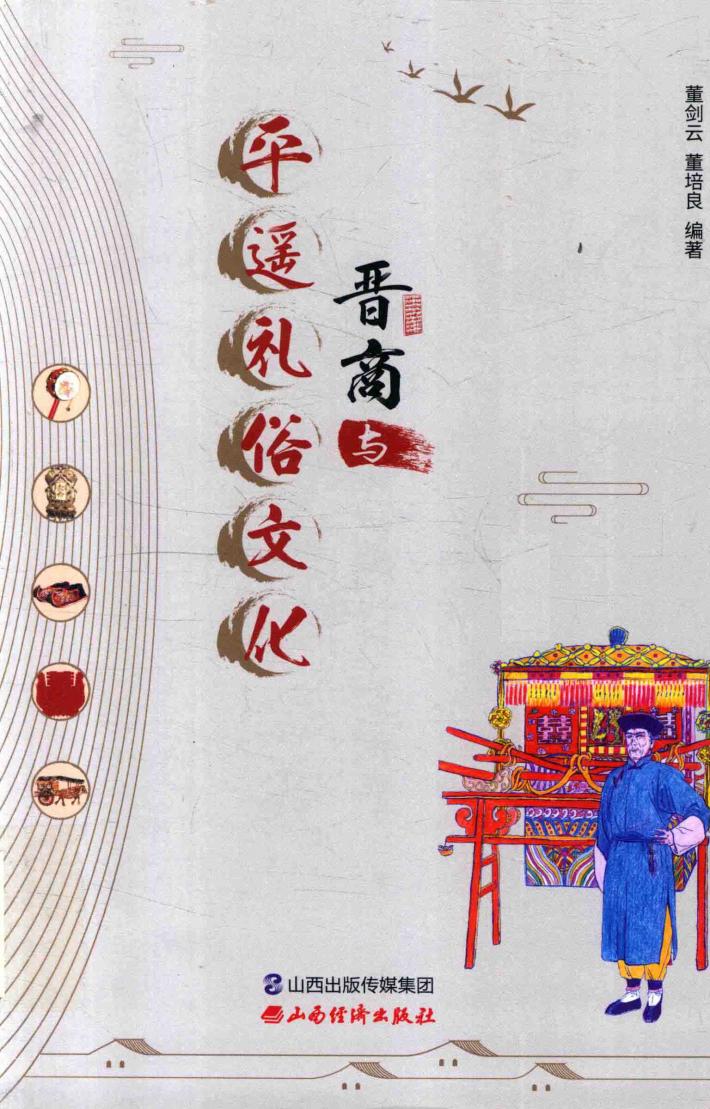 董剑云 董培良 编著
晋商与
平遥礼俗文化
山西出版传媒集团
山西经济出版社